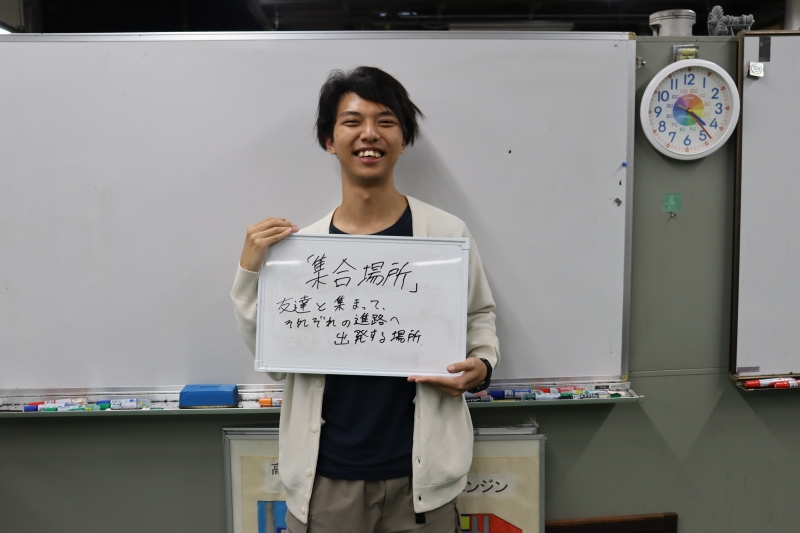 「集合場所」
友達と集まって、
それぞれの進路へ
出発する場所
12
1
2
3
4
5
6
7
8
9
10
11
高
ンジン